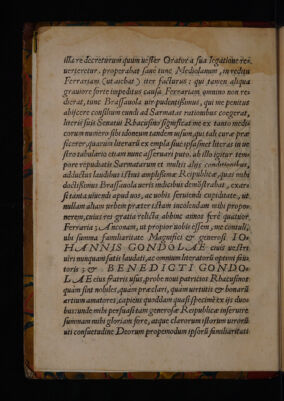 illa re decreturum quùm uester Orator à sua legatione reuerteretur, properabat sanè tunc Mediolanum, in reditu
Ferrariam (ut aiebat) iter facturus: qui tamen aliqua
grauiore forte impeditus causa Ferrariam omnino non redierat, tunc Brassauola uir prudentissimus, qui me penitus
abijcere consilium eundi ad Sarmatas rationibus coegerat,
literis suis Senatui Rhacusino significat me ex tanto medicorum numero sibi idoneum tandem uisum, qui tali curæ præficerer, quarum literarū exemplū suæ ipsiusmet literas in uestro tabulario etiam nunc asseruari puto. ab illo igitur tempore repudiatis Sarmatarum et multis alijs conditionibus,
adductus laudibus istius amplissimæ Reipublicæ, quas mihi
doctissimus Brassauola ueris indicibus demōstrabat, exarsi tanta uiuendi apud uos, ac uobis seruiendi cupiditate, ut
nullam aliam urbem præter istam incolendam mihi proponerem, cuius rei gratia relicta abhinc annos ferè quatuor
Ferraria; Anconam, ut propior uobis essem, me contuli,
ubi summa familiaritate Magnifici & generosi IO-
HANNIS GONDOLAE ciuis uestri
uiri nunquam satis laudati, ac omnium literatorū optimi fautoris; & BENEDICTI GONDO-
LAE eius fratris usus, probe noui patricios Rhacusinos
quàm sint nobiles, quàm præclari, quàm uirtutis & bonarū
artium amatores, capiens quoddam quasi specimē ex ijs duobus: unde mihi persuasi tam generosæ Reipublicæ inseruire
summam mihi gloriam fore, atque clarorum istorum uirorū
uti consuetudine Deorum propemodum ipsorū similiaritati